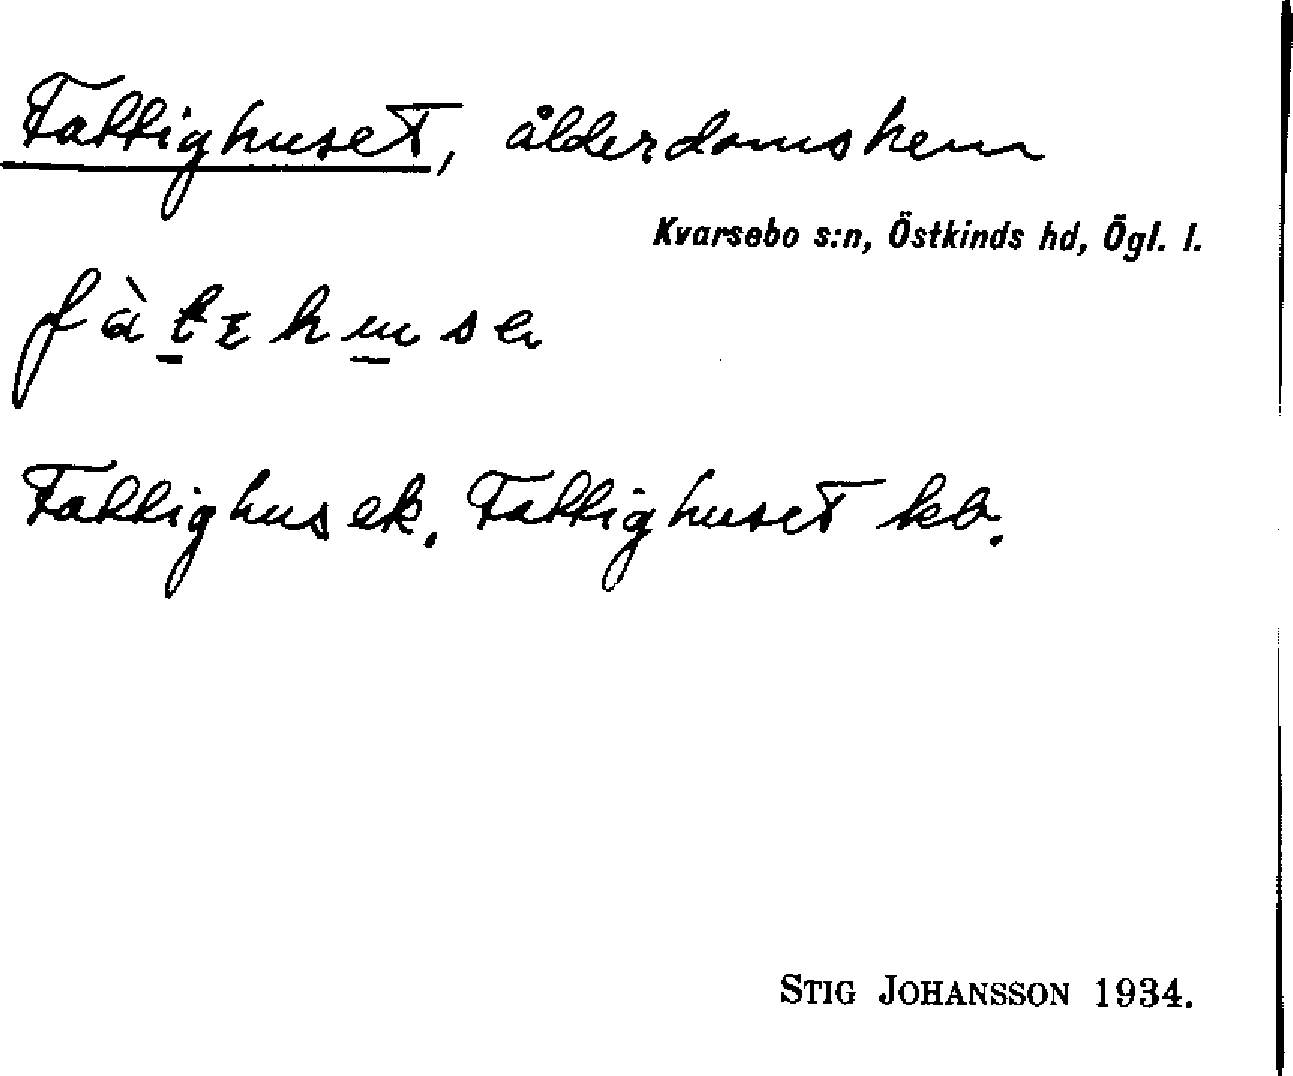 Fattighuset, ålderdomshem
Kvarsebo s:n, Östkinds hd, Ögl. l.
Fattighus ek. Fattighuset kb.
STIG JOHANSSON 1934.